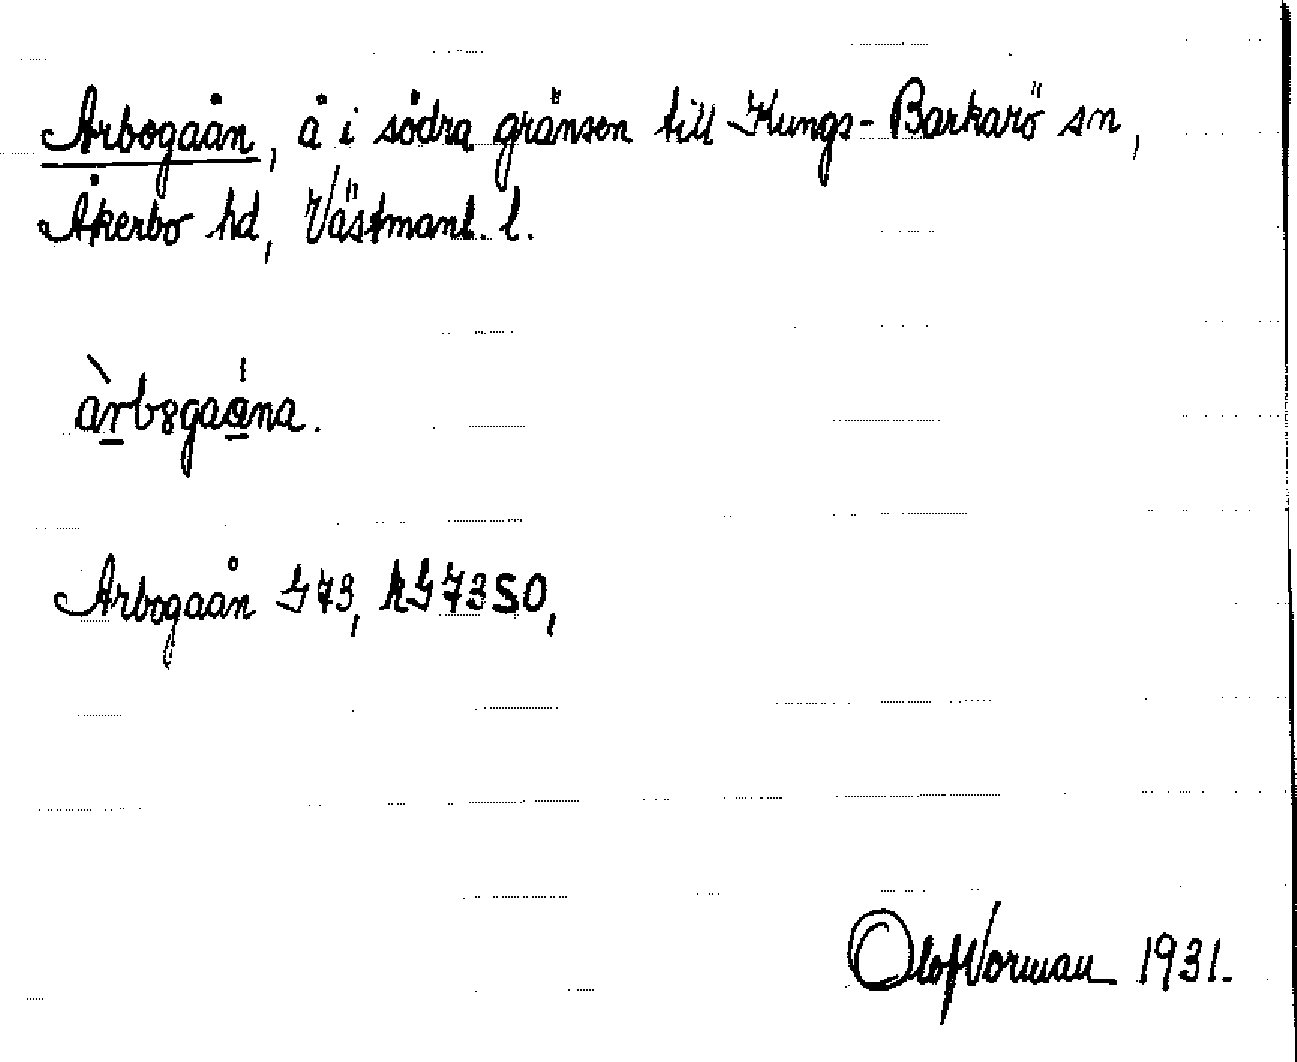 Arbogaån, å i södra gränsen till Kungs-Barkarö sn,
Åkerbo hd, Västmanl. l.
àrbogaåna.
Arbogaån G73, kG73SO,
Olof Vorman 1931.